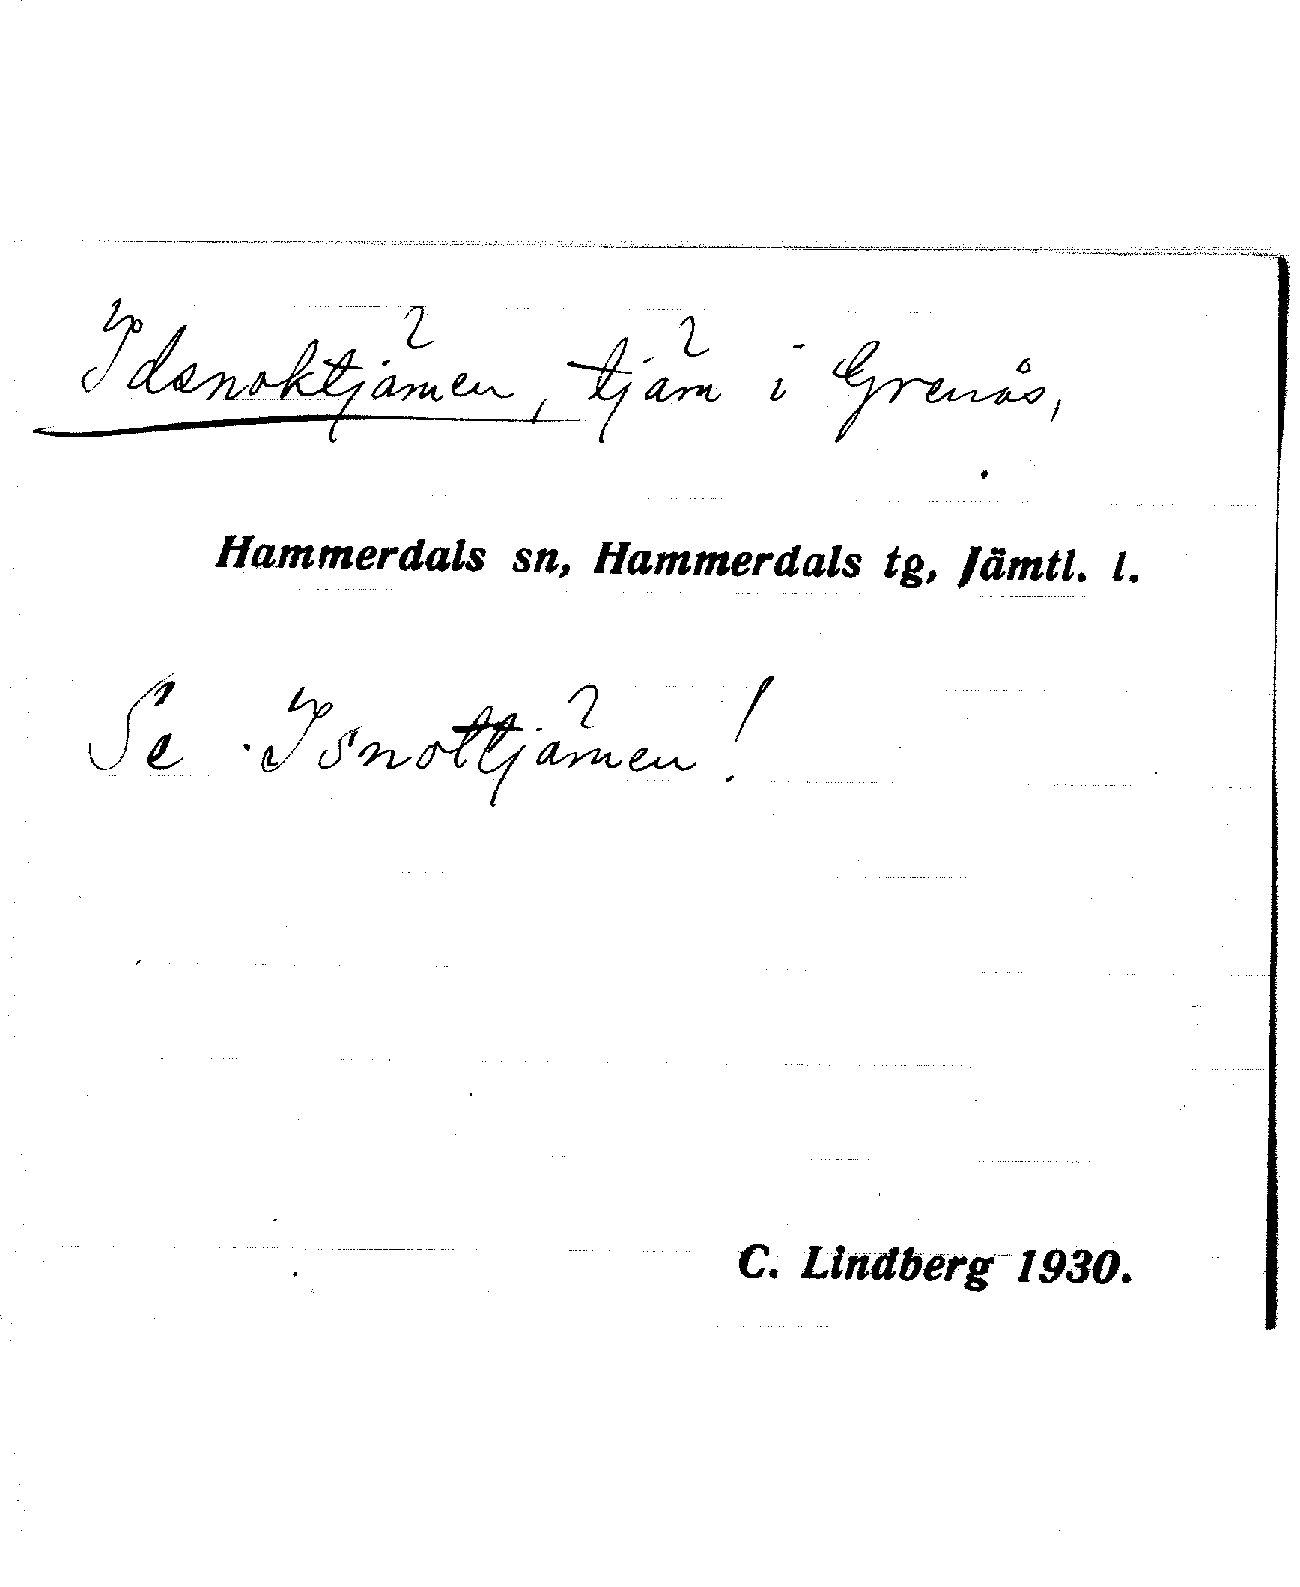 Idsnoktjärnen, tjärn i Grenås,
Hammerdals sn, Hammerdals tg, Jämtl. l.
Se Isnottjärnen!
C. Lindberg 1930.